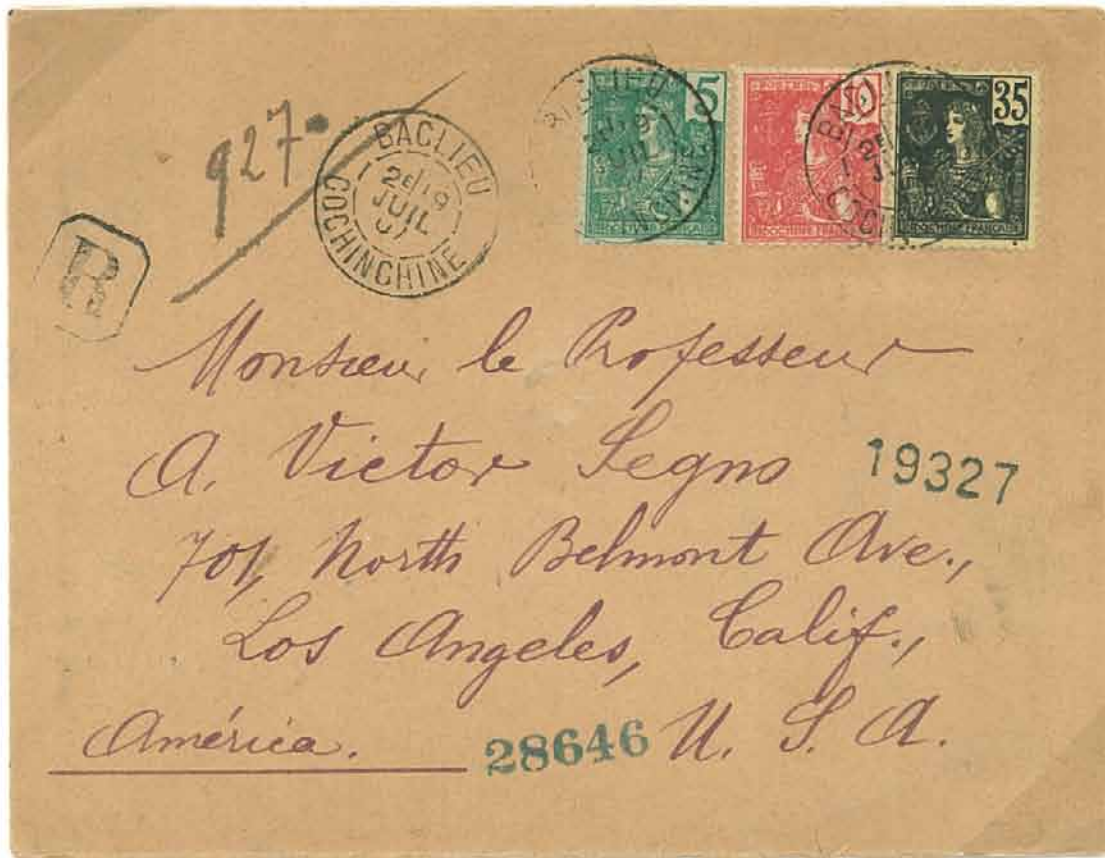 927
R
BACLIEU
2e/19
JUIL
07
COCHINCHINE
5
10
35
POSTES
INDOCHINE FRANÇAISE
INDOCHINE FRANÇAISE
INDOCHINE FRANÇAISE
Monsieur le Professeur
A. Victor Segno
19327
701, North Belmont Ave.,
Los Angeles, Calif.,
América. 28646 U. S. A.